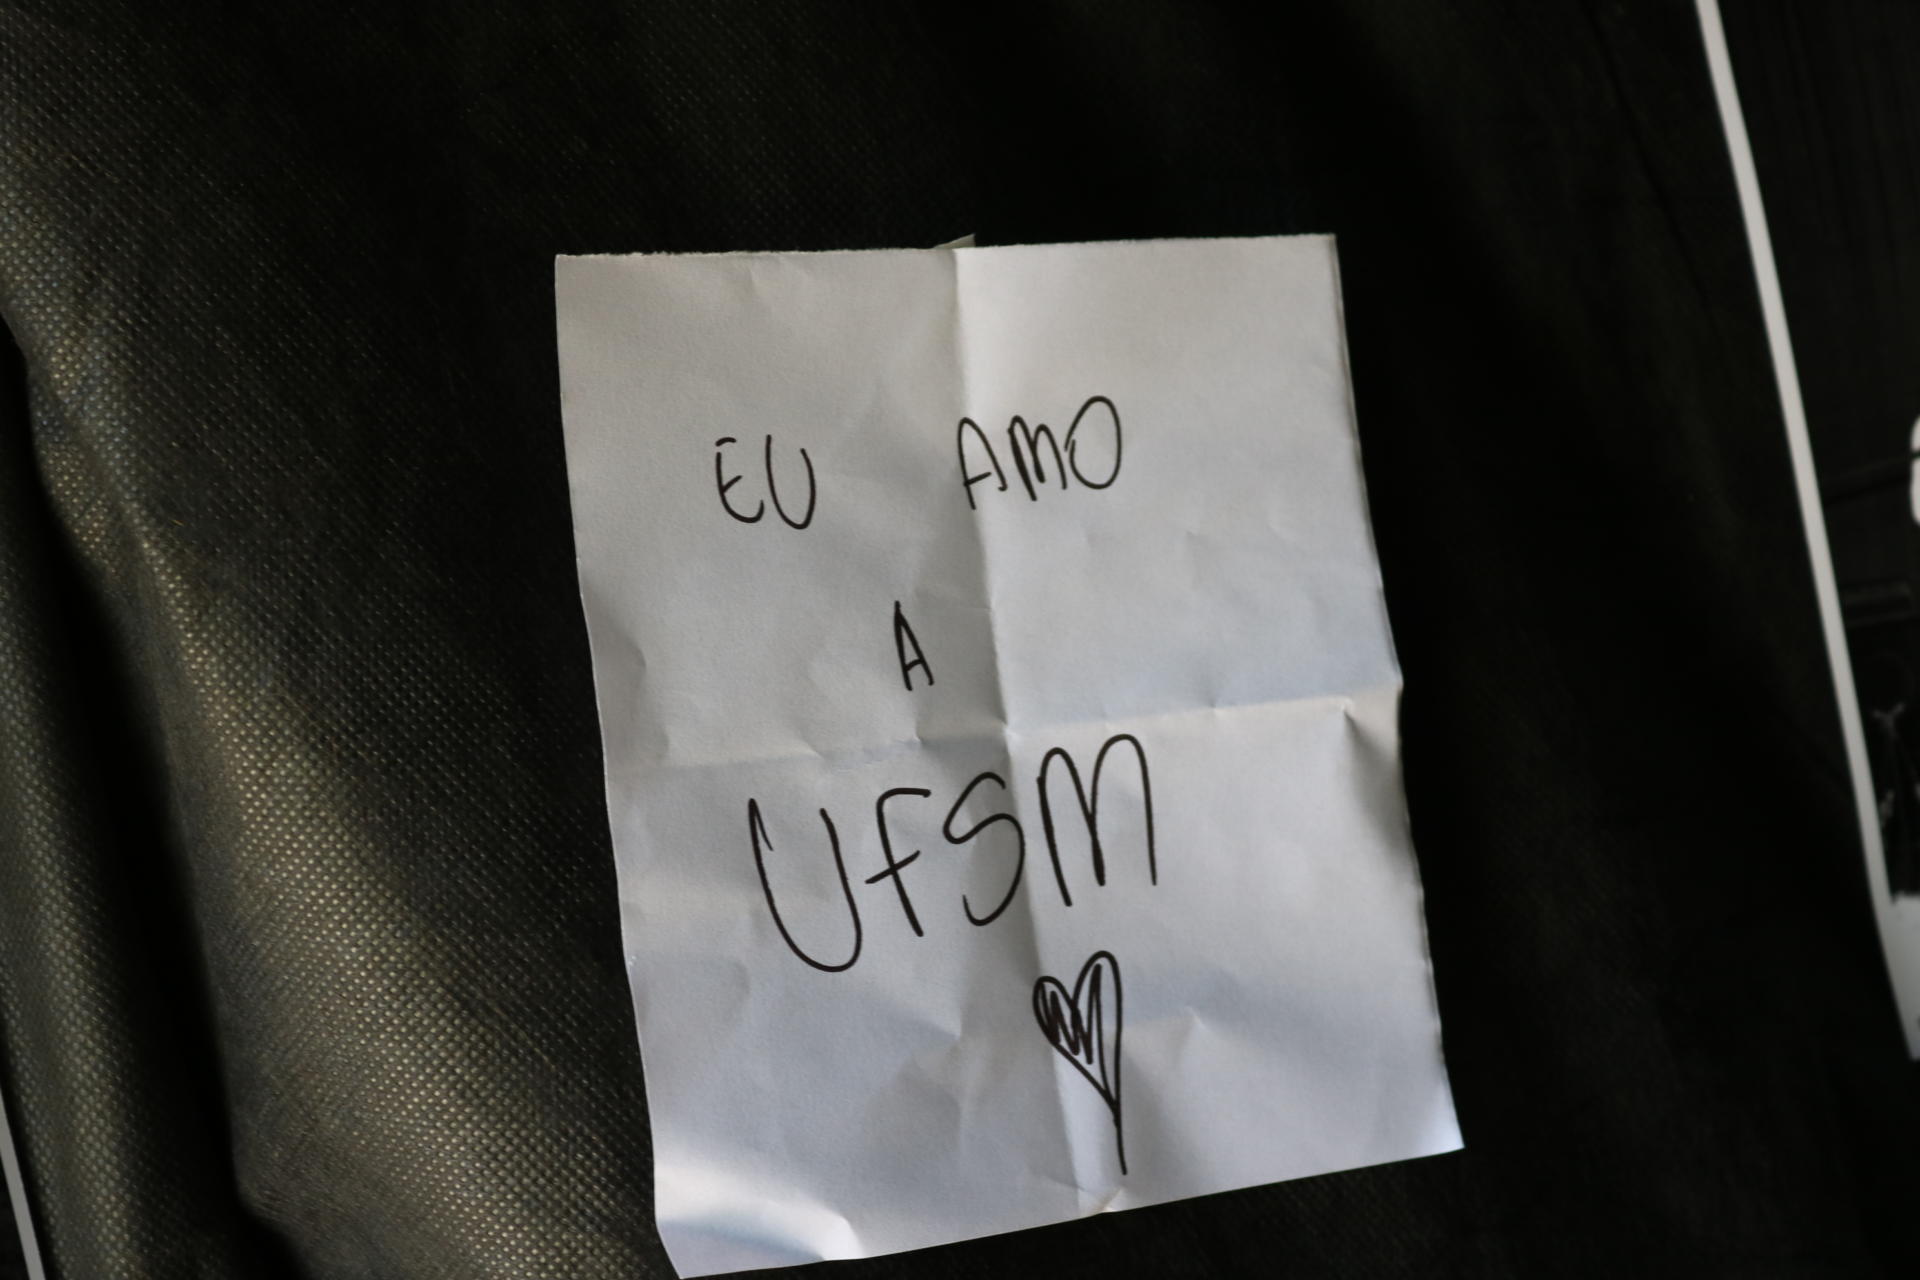 EU AMO
A
UFSM